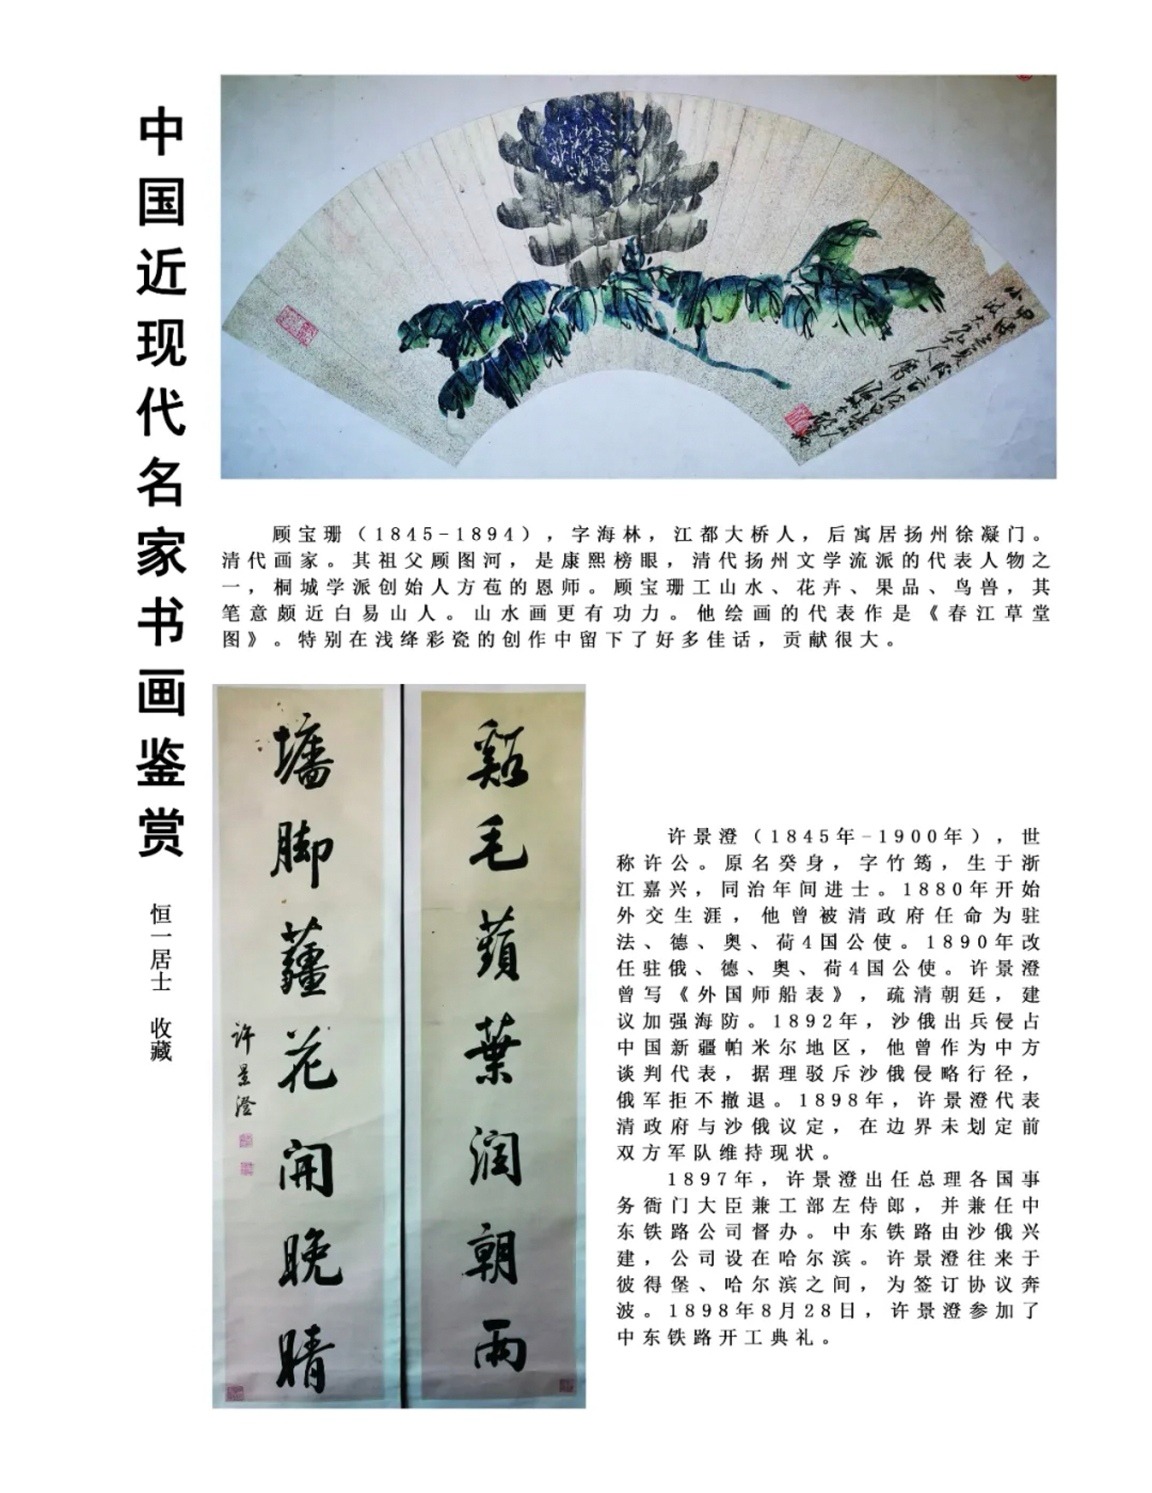 中国近现代名家书画鉴赏
恒一居士 收藏
顾宝珊（1845-1894），字海林，江都大桥人，后寓居扬州徐凝门。
清代画家。其祖父顾图河，是康熙榜眼，清代扬州文学流派的代表人物之
一，桐城学派创始人方苞的恩师。顾宝珊工山水、花卉、果品、鸟兽，其
笔意颇近白易山人。山水画更有功力。他绘画的代表作是《春江草堂
图》。特别在浅绛彩瓷的创作中留下了好多佳话，贡献很大。
谿毛蘋葉润朝雨
墙脚薑花開晚晴
许景澄
许景澄（1845年-1900年），世
称许公。原名癸身，字竹筠，生于浙
江嘉兴，同治年间进士。1880年开始
外交生涯，他曾被清政府任命为驻
法、德、奥、荷4国公使。1890年改
任驻俄、德、奥、荷4国公使。许景澄
曾写《外国师船表》，疏清朝廷，建
议加强海防。1892年，沙俄出兵侵占
中国新疆帕米尔地区，他曾作为中方
谈判代表，据理驳斥沙俄侵略行径，
俄军拒不撤退。1898年，许景澄代表
清政府与沙俄议定，在边界未划定前
双方军队维持现状。
1897年，许景澄出任总理各国事
务衙门大臣兼工部左侍郎，并兼任中
东铁路公司督办。中东铁路由沙俄兴
建，公司设在哈尔滨。许景澄往来于
彼得堡、哈尔滨之间，为签订协议奔
波。1898年8月28日，许景澄参加了
中东铁路开工典礼。